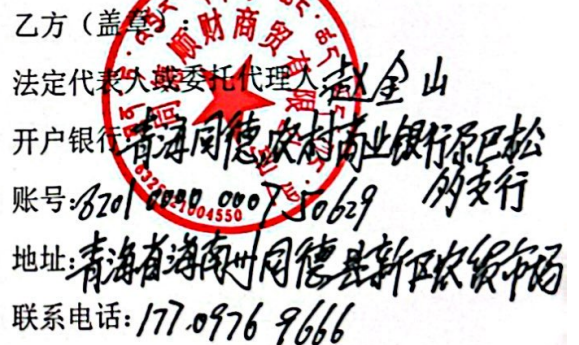 乙方（盖章）:
顺财商贸有限
法定代表人或委托代理人 赵金山
开户银行 青海同德农村商业银行尕巴松
多支行
账号:82010000000750629
6325 21004550
地址:青海省海南州同德县新区农贸市场
联系电话:177.0976 9666